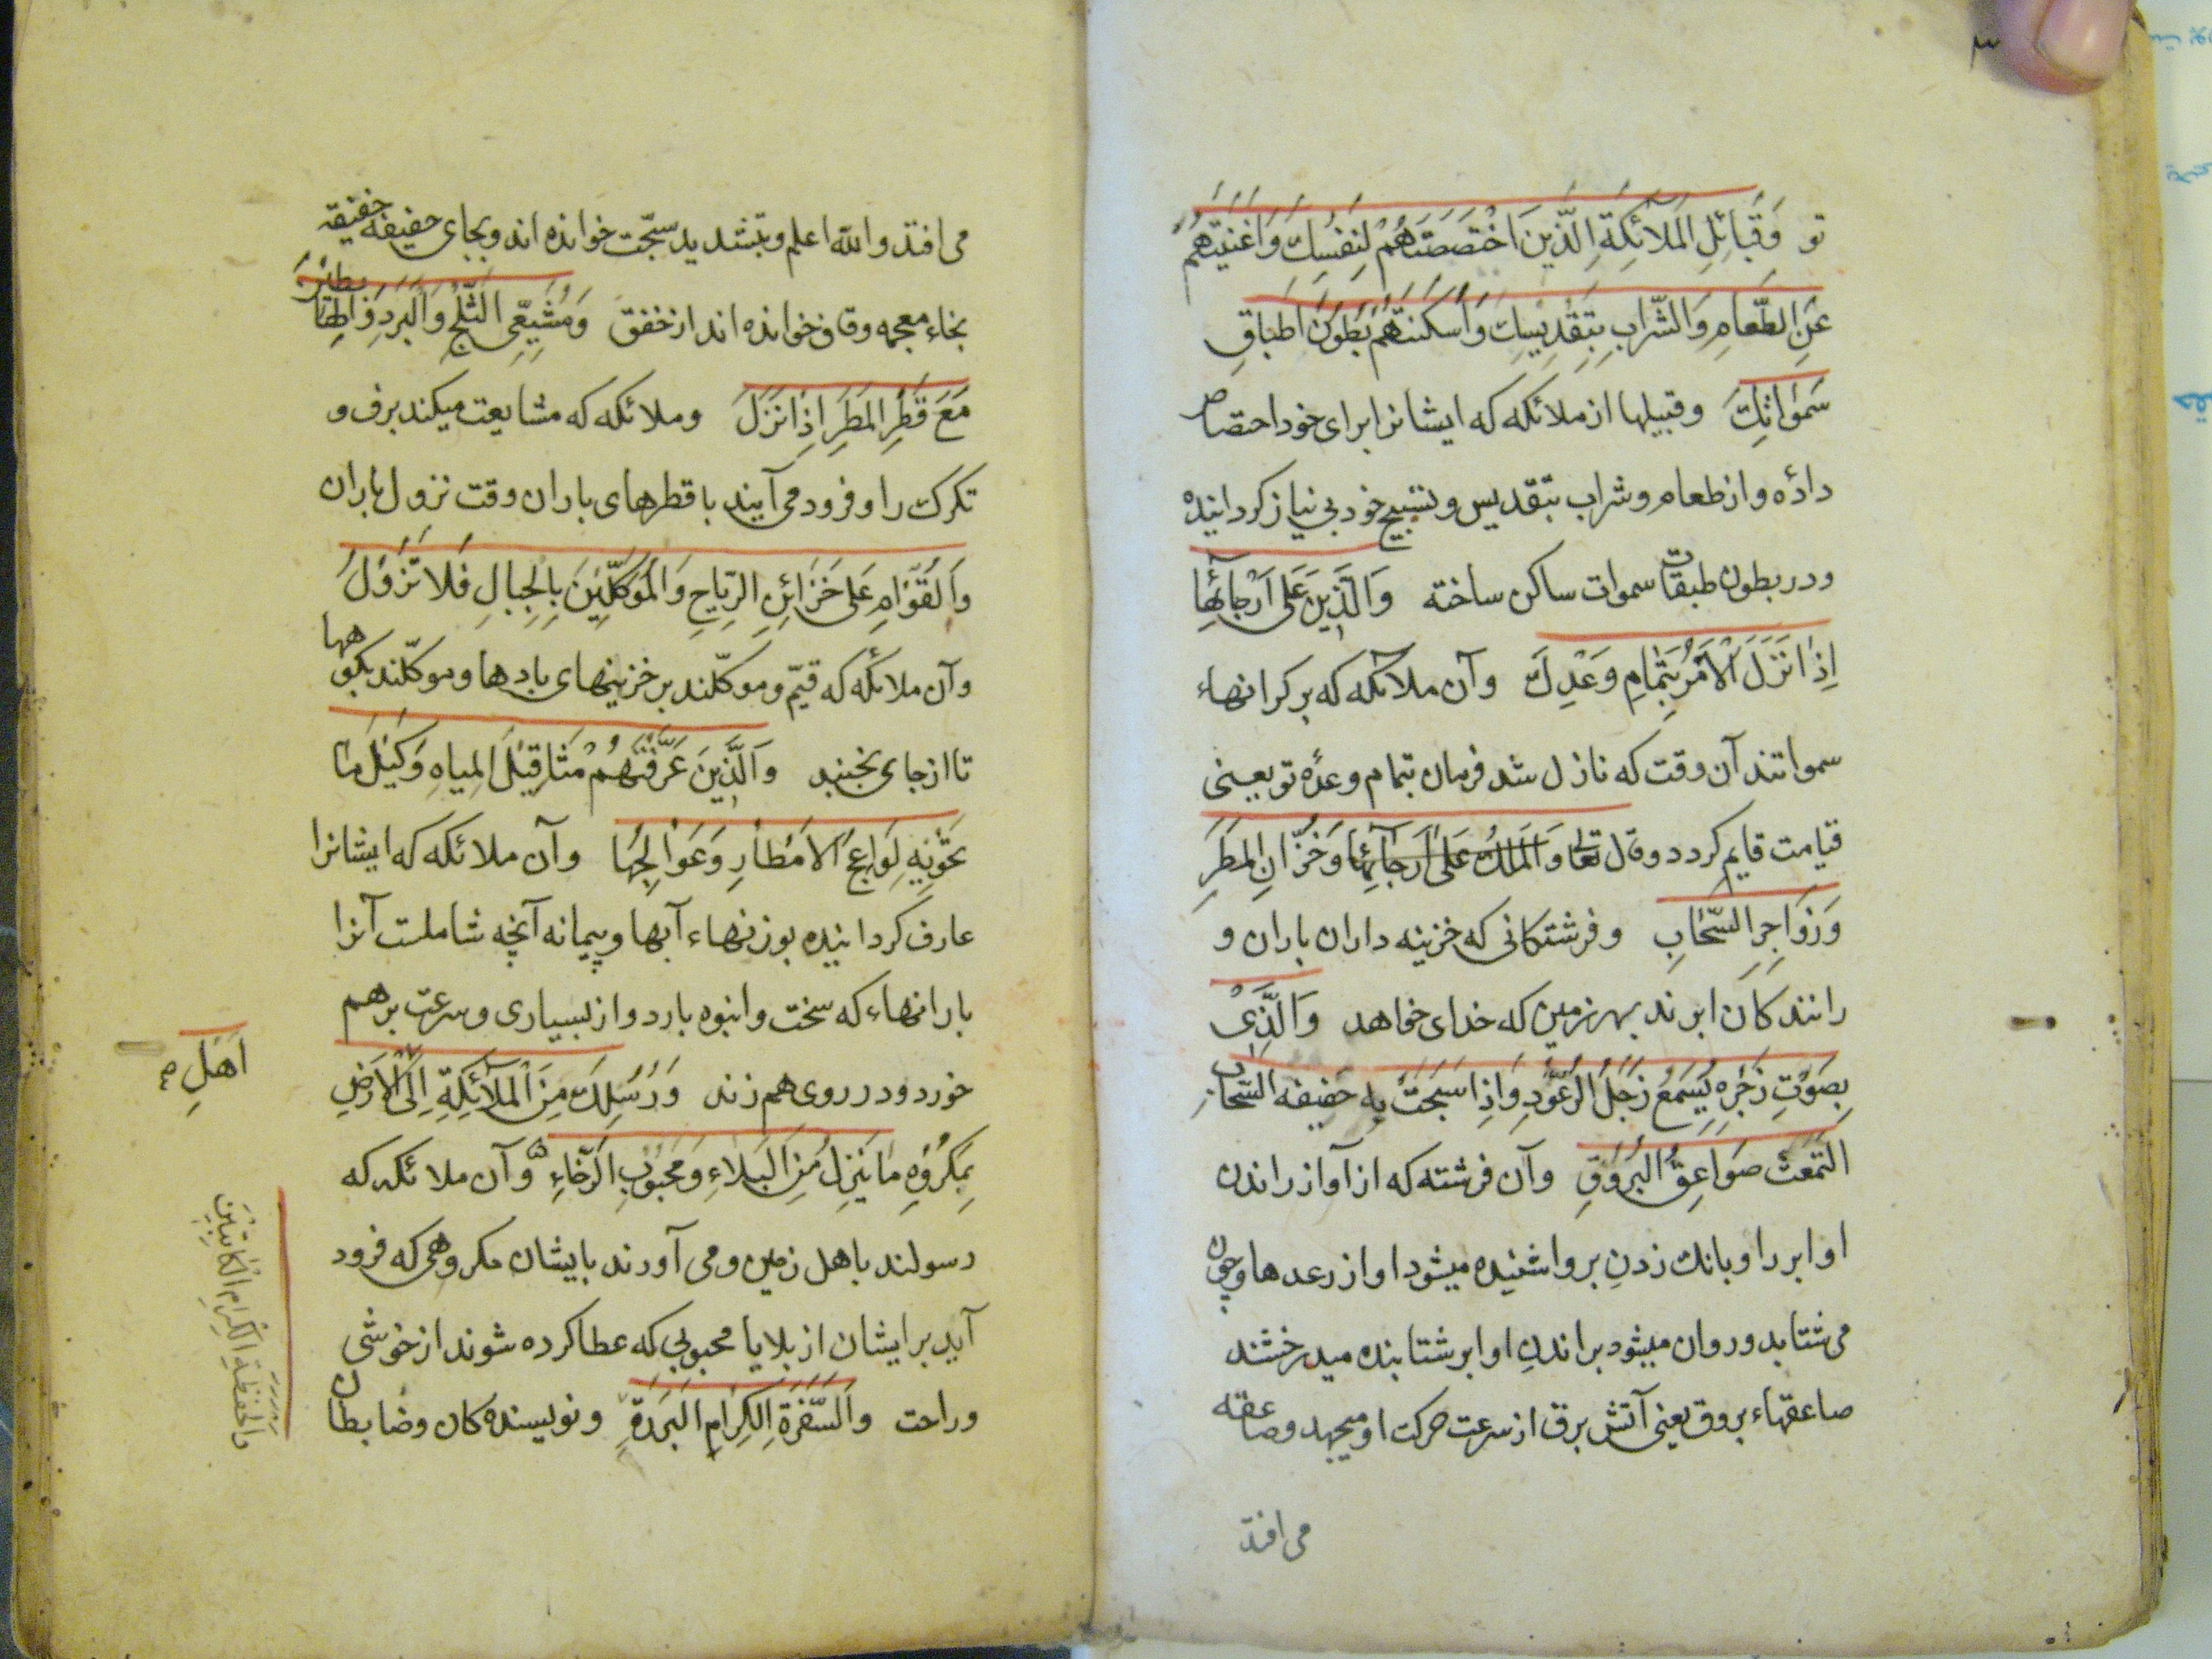 تو وَقَبَائِلِ المَلَائِكَةِ الَّذِينَ اخْتَصَصْتَهُمْ لِنَفْسِكَ وَاَغْنَيْتَهُمْ
عَنِ الطَّعَامِ وَالشَّرَابِ بِتَقْدِيسِكَ وَاَسْكَنْتَهُمْ بُطُونَ اَطْبَاقِ
سَمٰوَاتِكَ وقبیلها از ملائکه که ایشانرا برای خود اختصاص
دادهٔ و از طعام و شراب بتقدیس و تسبیح خود بی نیاز کردانیده
و در بطون طبقات سموات ساکن ساخته وَالَّذِينَ عَلىٰ اَرْجَائِهَا
اِذَا نَزَلَ الْاَمْرُ بِتَمَامِ وَعْدِكَ و آن ملائکه که بر کرانهاء
سمواتند آن وقت که نازل شد فرمان بتمام وعدهٔ تو یعنی
قیامت قایم کردد و قال تعالی وَالمَلَكُ عَلىٰ اَرْجَائِهَا وَخُزَّانِ المَطَرِ
وَزَوَاجِرِ السَّحَابِ و فرشتکانی که خزینه داران باران و
رانندکان ابرند بهر زمین که خدای خواهد وَالَّذِيْ
بِصَوْتِ زَجْرِهِ يُسْمَعُ زَجَلُ الرُّعُودِ وَاِذَا سَبَحَتْ بِهِ حَفِيفَةُ السَّحَابِ
الْتَمَعَتْ صَوَاعِقُ الْبُرُوقِ و آن فرشته که از آواز راندن
او ابر را و بانك زدنِ بر و اشنیده میشود اواز رعدها و چون
می شتابد و روان میشود براندنِ او ابر شتابنده میدرخشند
صاعقهاء بروق یعنی آتش برق از سرعت حرکت او میجهد و صاعقه
می افتد
می افتد والله اعلم و بتشدید سبّحت خوانده اند و بجای حفیفه خفیقه
بخاء معجمه و قاف خوانده اند از خفق وَمُشَيِّعِي الثَّلْجِ وَالْبَرَدِ وَالهَابِطِيْنَ
مَعَ قَطْرِ المَطَرِ اِذَا نَزَلَ و ملائکه که مشایعت میکند برف و
تکرك را و فرود می آیند با قطرهای باران وقت نزول باران
وَالْقُوَّامِ عَلىٰ خَزَائِنِ الرِّيَاحِ وَالْمُوَكَّلِينَ بِالْجِبَالِ فَلَا تَزُوْلُ
و آن ملائکه که قیّم و موکّلند بر خزینهای بادها و موکّلند بکوهها
تا از جای نجنبد وَالَّذِينَ عَرَّفْتَهُمْ مَثَاقِيْلَ الْمِيَاهِ وَكَيْلَ مَا
تَحْوِيْهِ لَوَاعِجُ الْاَمْطَارِ وَعَوَالِجُهَا و آن ملائکه که ایشانرا
عارف کردانیده بوزنهاء آبها و پیمانه آنچه شاملست آنرا
بارانهاء که سخت و انبوه بارد و از بسیاری و سرعت بر هم
خورد و در روی هم زند وَرُسُلِكَ مِنَ الْمَلَائِكَةِ اِلَى الْاَرْضِ
اَهْلِ صح
بِمَكْرُوْهِ مَا يَنْزِلُ مِنَ الْبَلَاءِ وَمَحْبُوْبِ الرَّخَاءِ و آن ملائکه که
رسولند باهل زمین و می آورند بایشان مکروهی که فرود
آید بر ایشان از بلا یا محبوبی که عطا کرده شوند از خوشی
و راحت وَالسَّفَرَةِ الْكِرَامِ الْبَرَرَةِ و نویسندهکان و ضابطان
وَالْحَفَظَةِ الْكِرَامِ الْكَاتِبِيْنَ